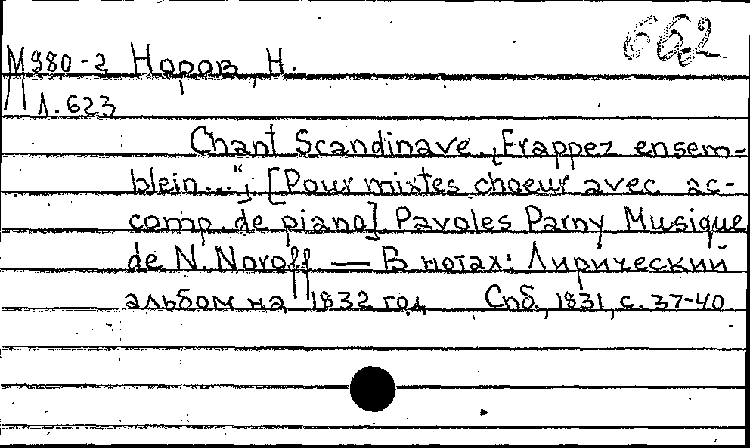 662
М980-2 Норов, Н.
Л.623
Chant Scandinave „Frappez ensem-
blein...“; [Pour mixtes choeur avec ac-
comp. de piano]. Pavoles Parny Musique
de N. Noroff — В нотах: Лирический
альбом на 1832 год Спб, 1831, с. 37-40